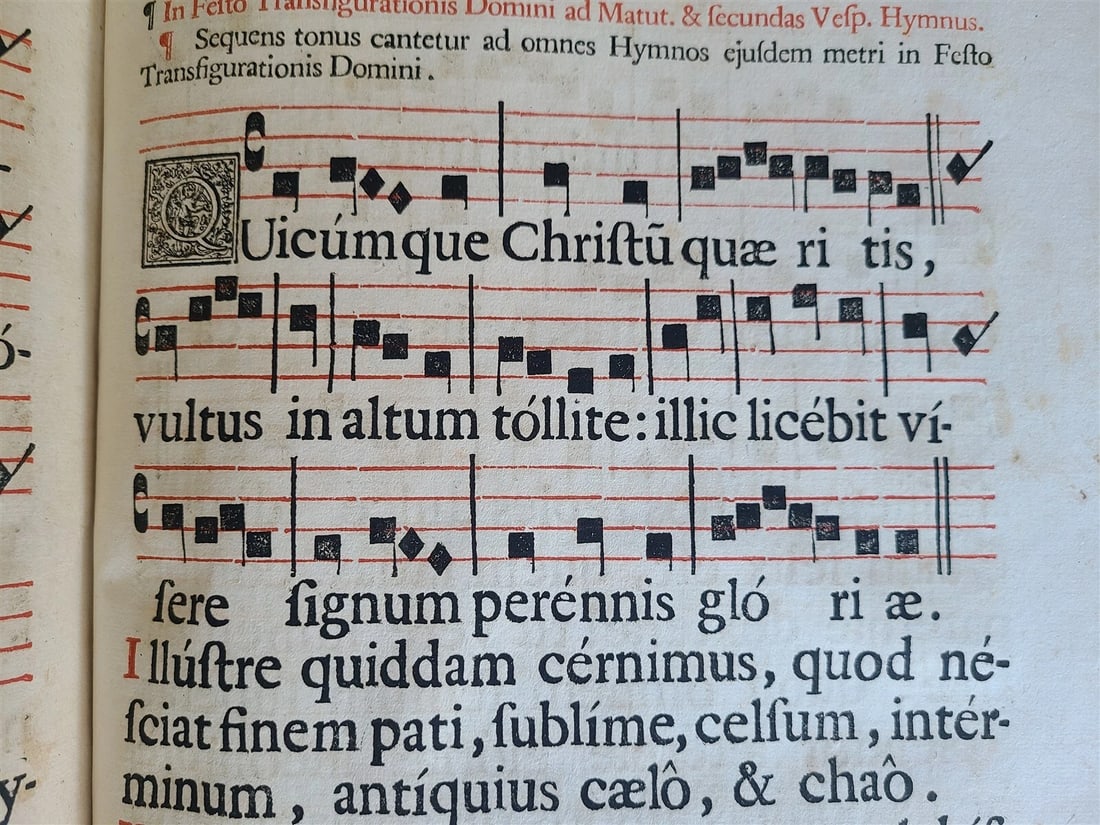 ¶ In Feſto Transfigurationis Domini ad Matut. & ſecundas Veſp. Hymnus.
¶ Sequens tonus cantetur ad omnes Hymnos ejuſdem metri in Feſto
Transfigurationis Domini.
QUicúmque Chriſtū quæ ri tis,
vultus in altum tóllite: illic licébit ví-
ſere ſignum perénnis gló ri æ.
Illúſtre quiddam cérnimus, quod né-
ſciat finem pati, ſublíme, celſum, intér-
minum, antíquius cælô, & chaô.